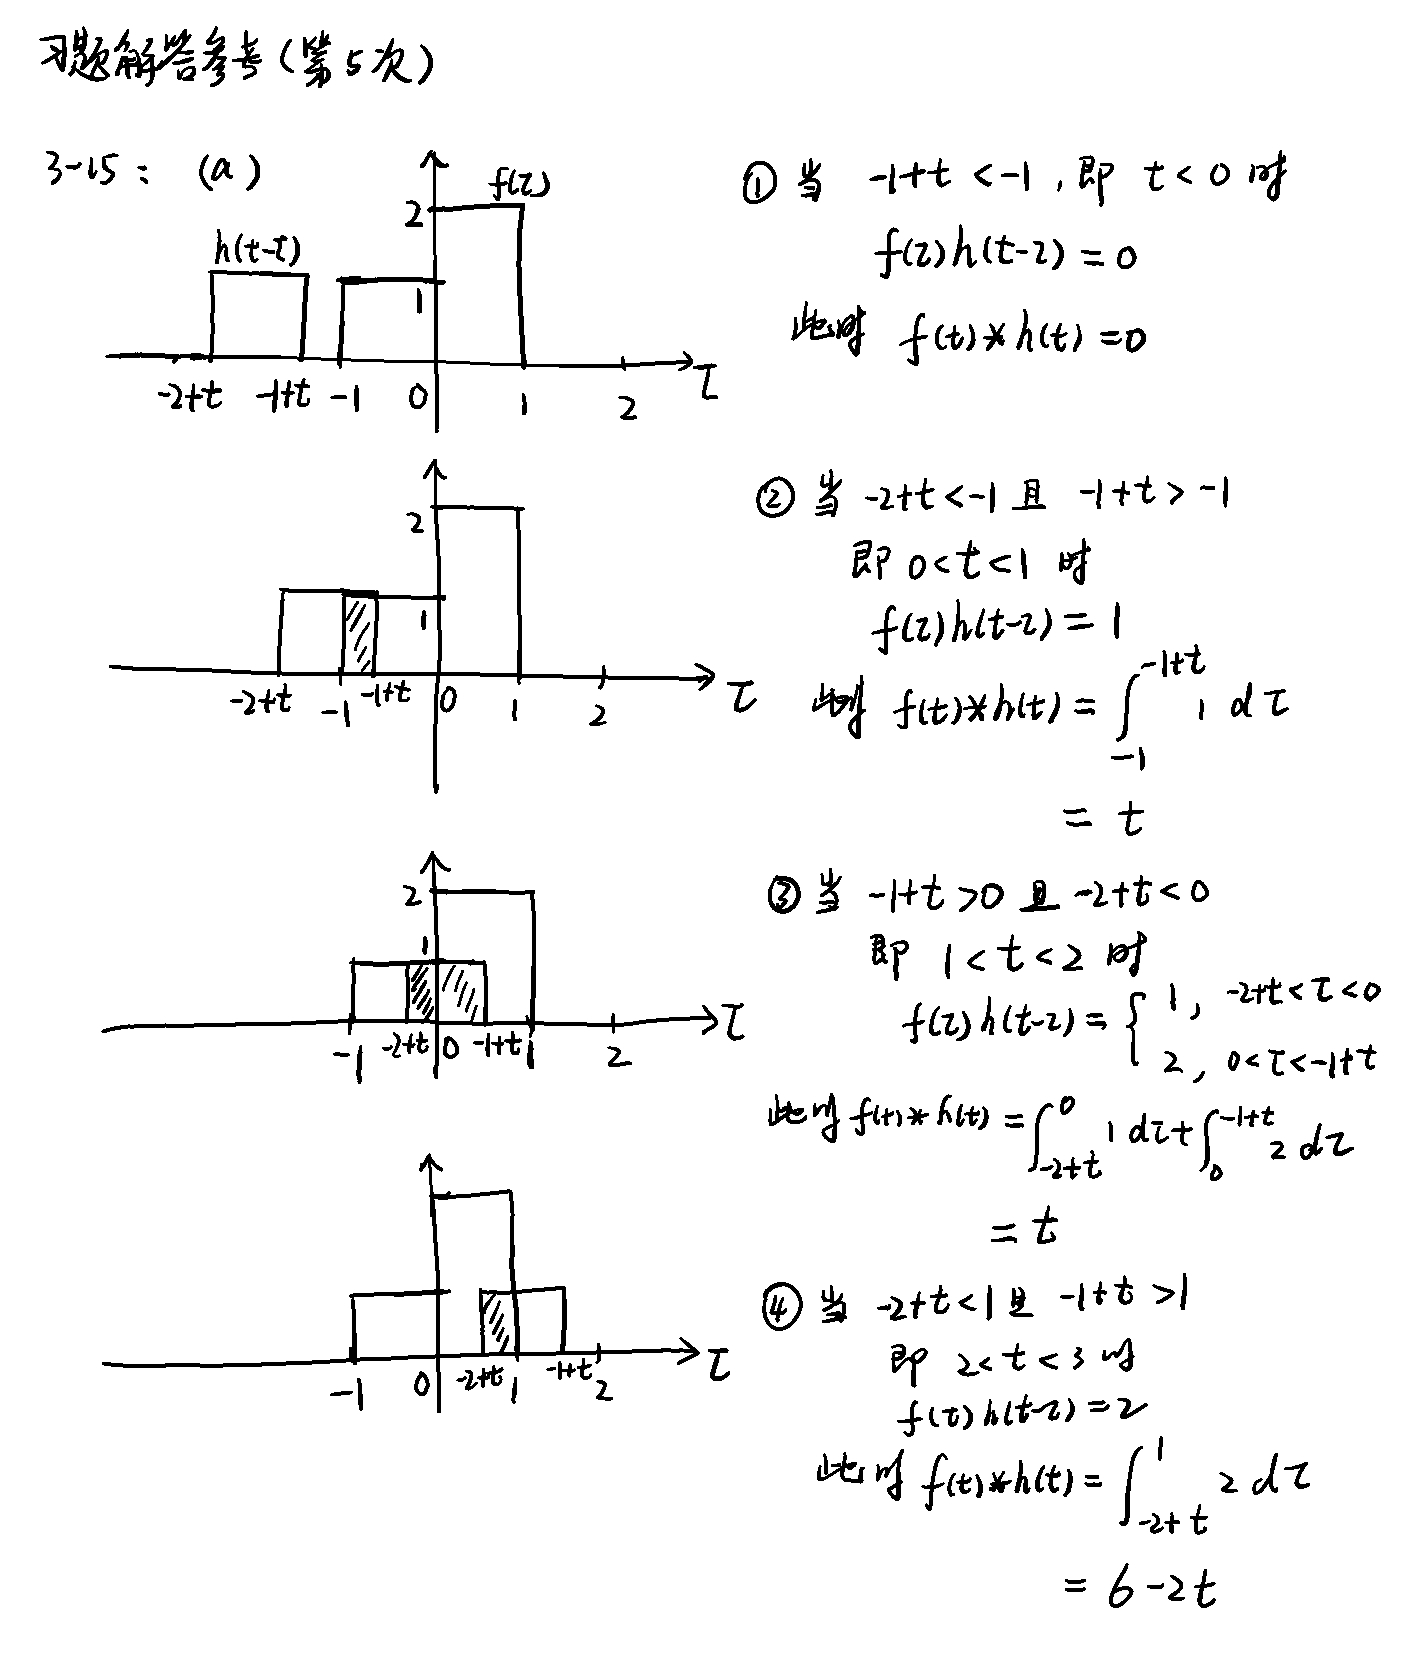 习题解答参考(第5次)
3-15: (a)
f(τ)
2
h(t-τ)
1
-2+t -1+t -1 0 1 2 τ
① 当 -1+t<-1, 即 t<0 时
f(τ)h(t-τ)=0
此时 f(t)*h(t)=0
2
1
-2+t -1 -1+t 0 1 2 τ
② 当 -2+t<-1 且 -1+t>-1
即 0<t<1 时
f(τ)h(t-τ)=1
此时 f(t)*h(t)=∫_{-1}^{-1+t} 1 dτ
= t
2
1
-1 -2+t 0 -1+t 1 2 τ
③ 当 -1+t>0 且 -2+t<0
即 1<t<2 时
f(τ)h(t-τ)={ 1, -2+t<τ<0
2, 0<τ<-1+t
此时 f(t)*h(t)=∫_{-2+t}^{0} 1 dτ+∫_{0}^{-1+t} 2 dτ
= t
-1 0 -2+t 1 -1+t 2 τ
④ 当 -2+t<1 且 -1+t>1
即 2<t<3 时
f(τ)h(t-τ)=2
此时 f(t)*h(t)=∫_{-2+t}^{1} 2 dτ
= 6-2t